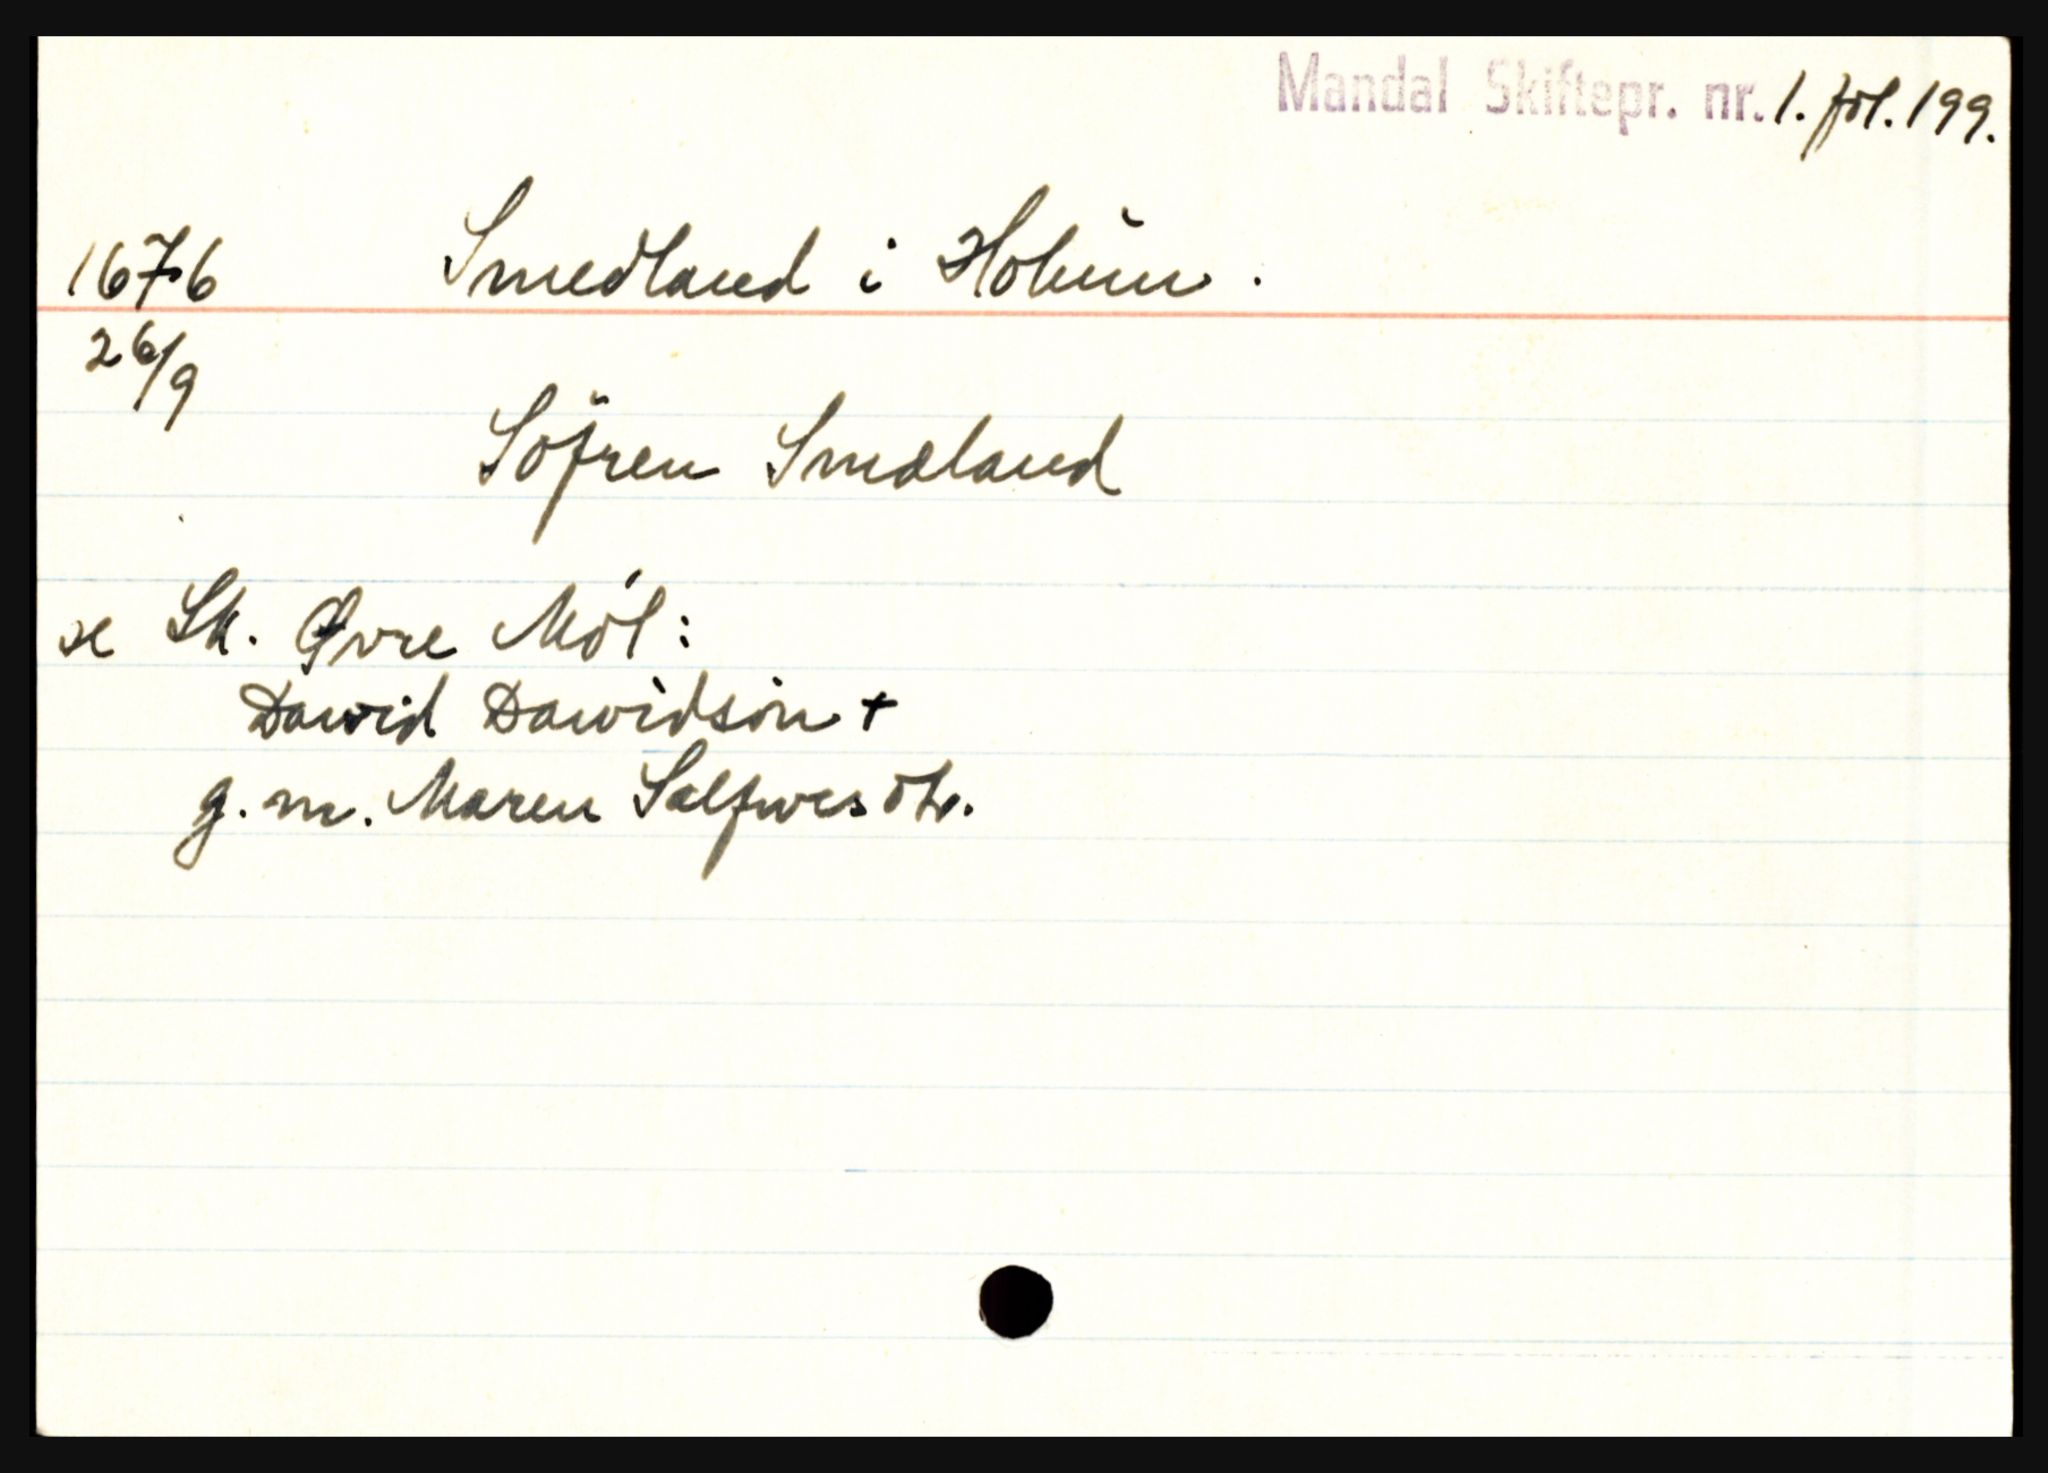 Mandal Skiftepr. nr. 1. fol. 199.
1676 Smedland i Holum.
26/9
Söfren Smæland
se Sk. Øvre Mól:
Dawid Dawidsön +
g. m. Maren Salfwesdtr.